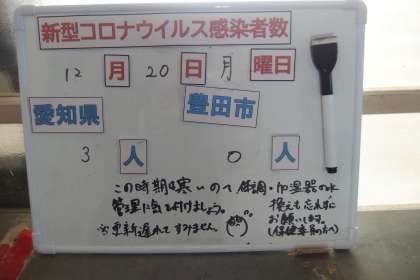 新型コロナウイルス感染者数
12月20日月曜日
愛知県 豊田市
3人 0人
この時期は寒いので体調
管理に気を付けましょう。
※更新遅れてすみません
加湿器の水
換えも忘れずに
お願いします。
(保健委員の方へ)